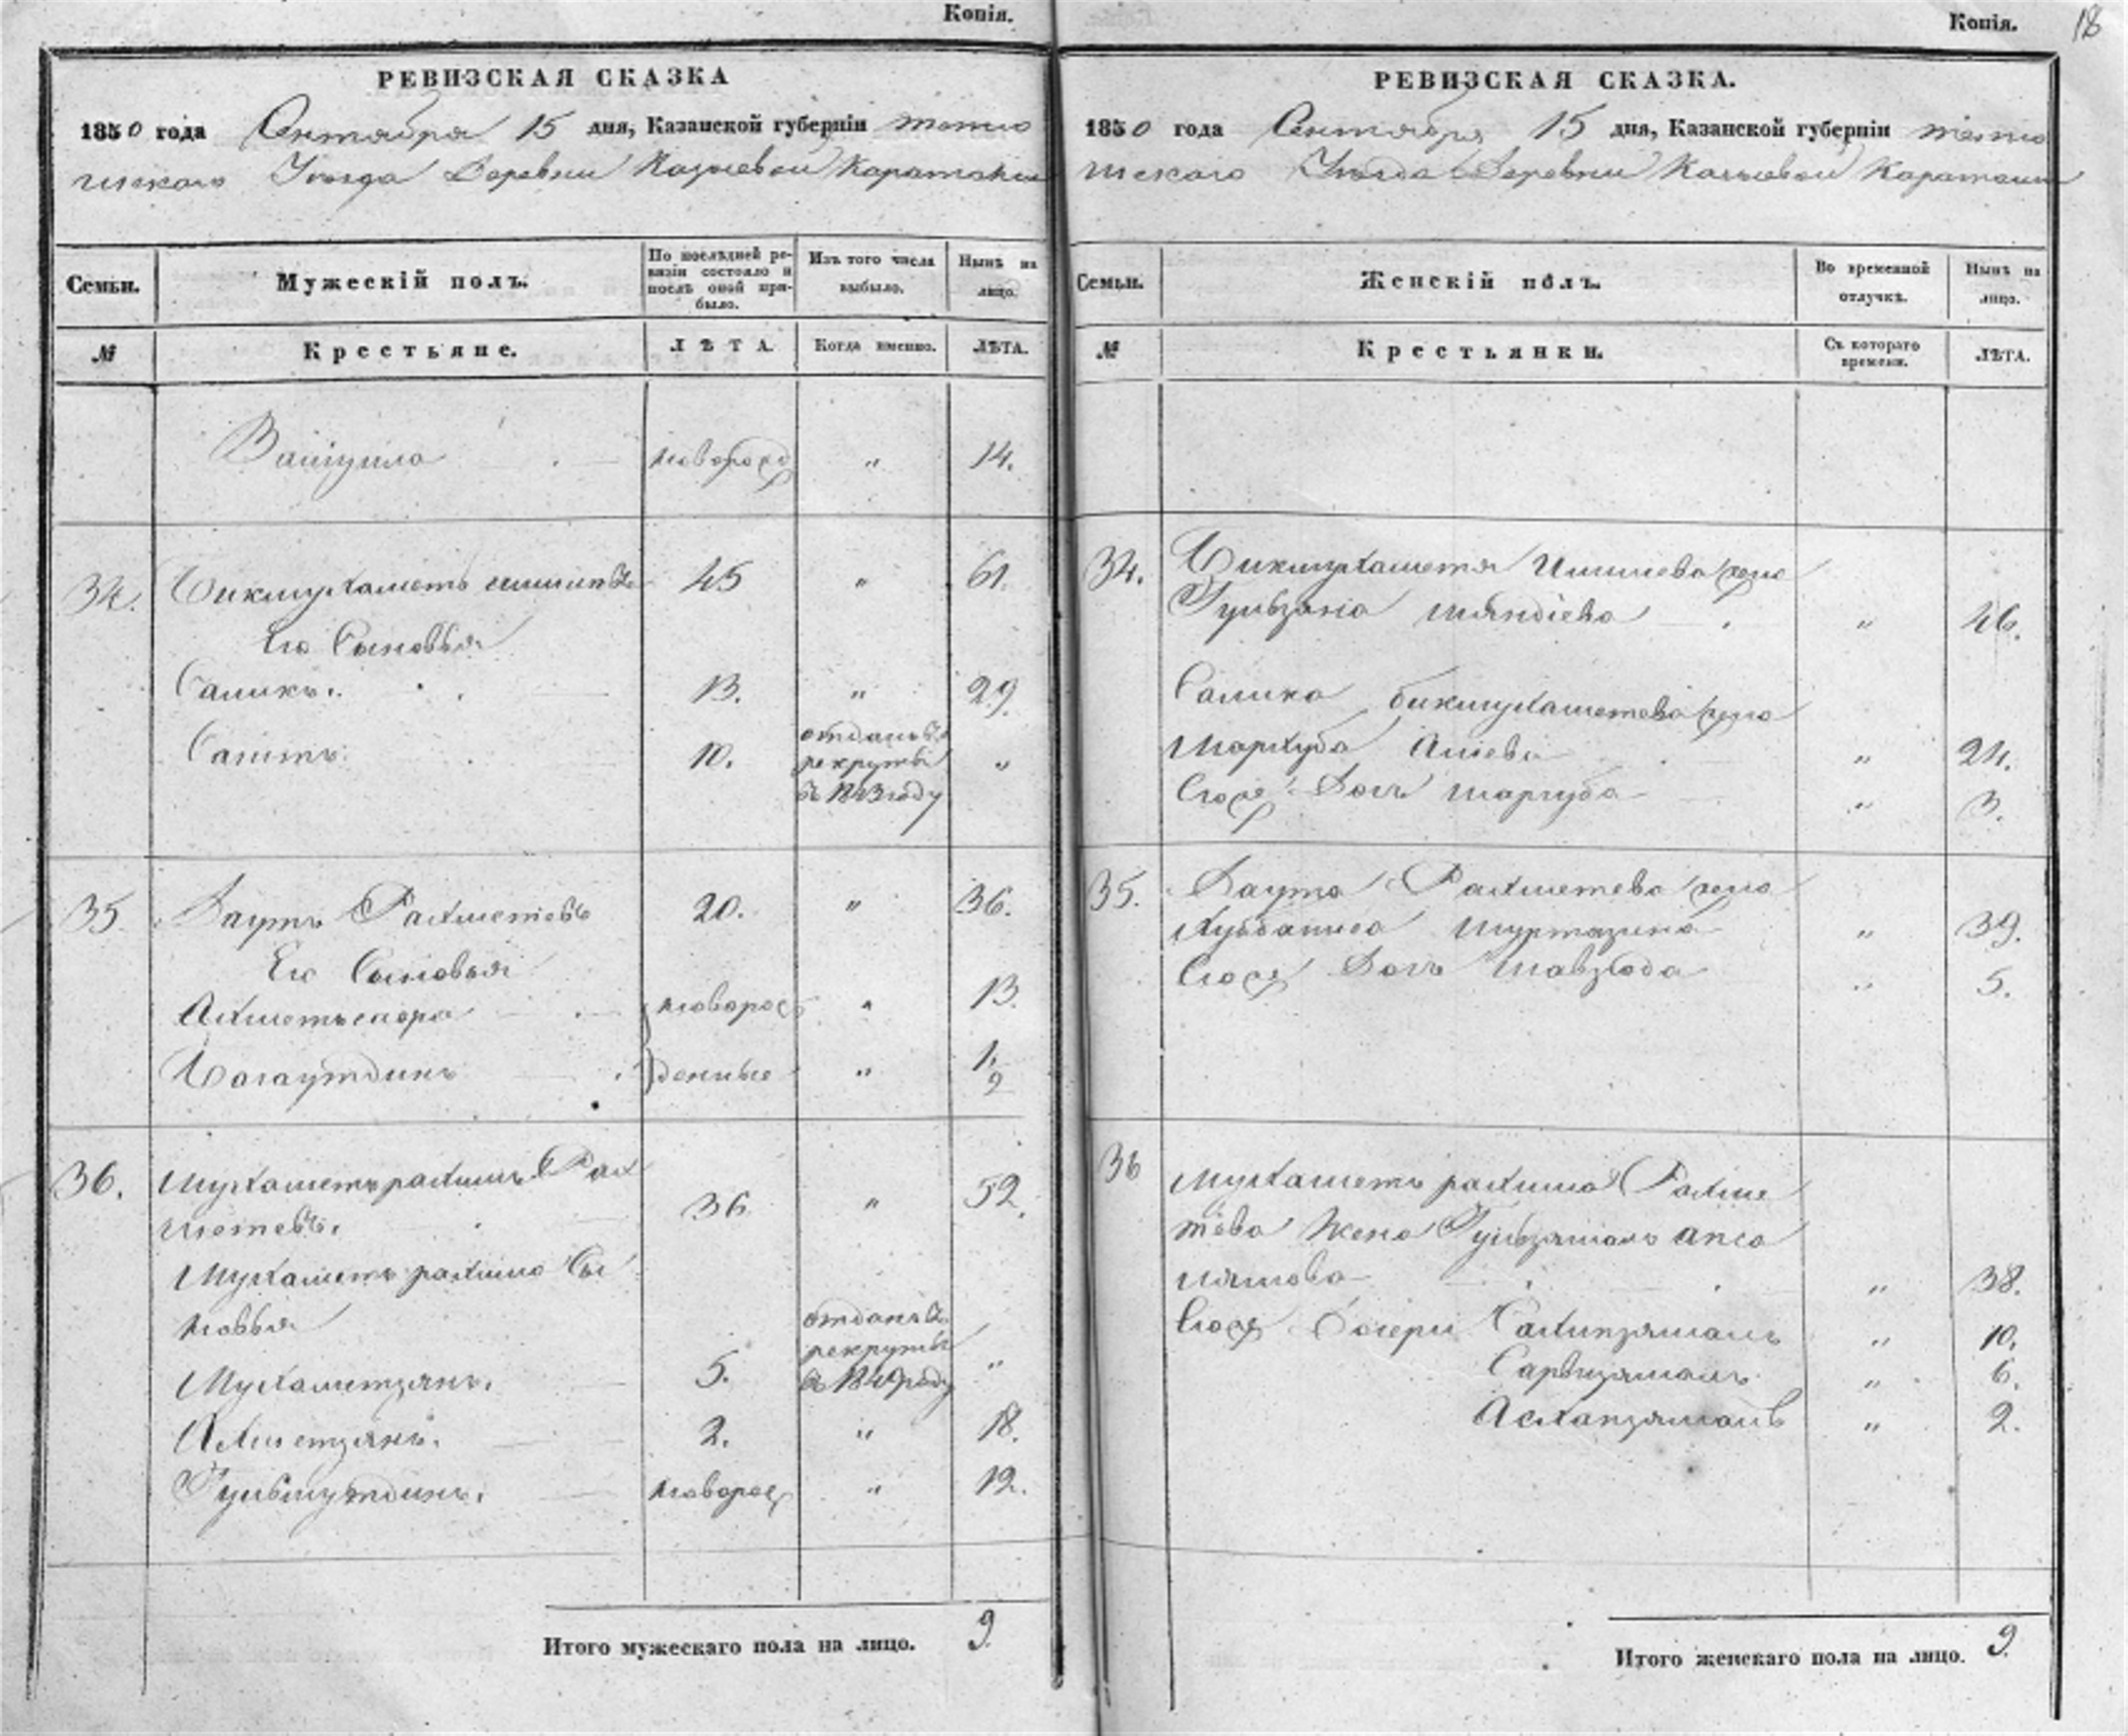 Копія.
РЕВИЗСКАЯ СКАЗКА
1850 года Сентября 15 дня, Казанской губерніи тетю
шскаго Уѣзда Деревни Казыевой Каратаи
Семьи.
Мужескій полъ.
По послѣдней ре-
визіи состояло и
послѣ оной при-
было.
Изъ того числа
выбыло.
Нынѣ на
лицо.
№
Крестьяне.
ЛѢТА.
Когда именно.
ЛѢТА.
новорожд „ 14.
34. Бикмухаметъ 45 „ 61.
Его Сыновья
Саликъ. 13. „ 29.
Сагитъ. 10. отданъ въ
рекруты
въ 1843 году „
35 Даутъ Рахметевъ 20. „ 36.
Его Сыновья
новорож „ 13.
Багаутдинъ денные „ 1/2
36. Мухаметьрахимъ Рах
метевъ. 36 „ 52.
Мухаметьрахима Сы
новья
Мухаметзянъ. 5. отданъ въ
рекруты
въ 1849 году „
Ахметзянъ. 2. „ 18.
новорож „ 12.
Итого мужескаго пола на лицо. 9
Копія.
18
РЕВИЗСКАЯ СКАЗКА.
1850 года Сентября 15 дня, Казанской губерніи тетю
шскаго Уѣзда Деревни Казыевой Каратаи
Семьи.
Женскій полъ.
Во временной
отлучкѣ.
Нынѣ на
лицо.
№
Крестьянки.
Съ котораго
времени.
ЛѢТА.
34. Бикмухаметя жена
„ 46.
Салика бикмухаметева жена
Маргуба Алиева „ 24.
Ея дочь „ 3.
35. Даута Рахметева жена
Хубданиса Муртазина „ 39.
Ея дочь „ 5.
36 Мухаметь рахима Рахме
тева Жена Гульзямаль апса
лямова „ 38.
Дочери „ 10.
Сарвизямалъ „ 6.
„ 2.
Итого женскаго пола на лицо. 9